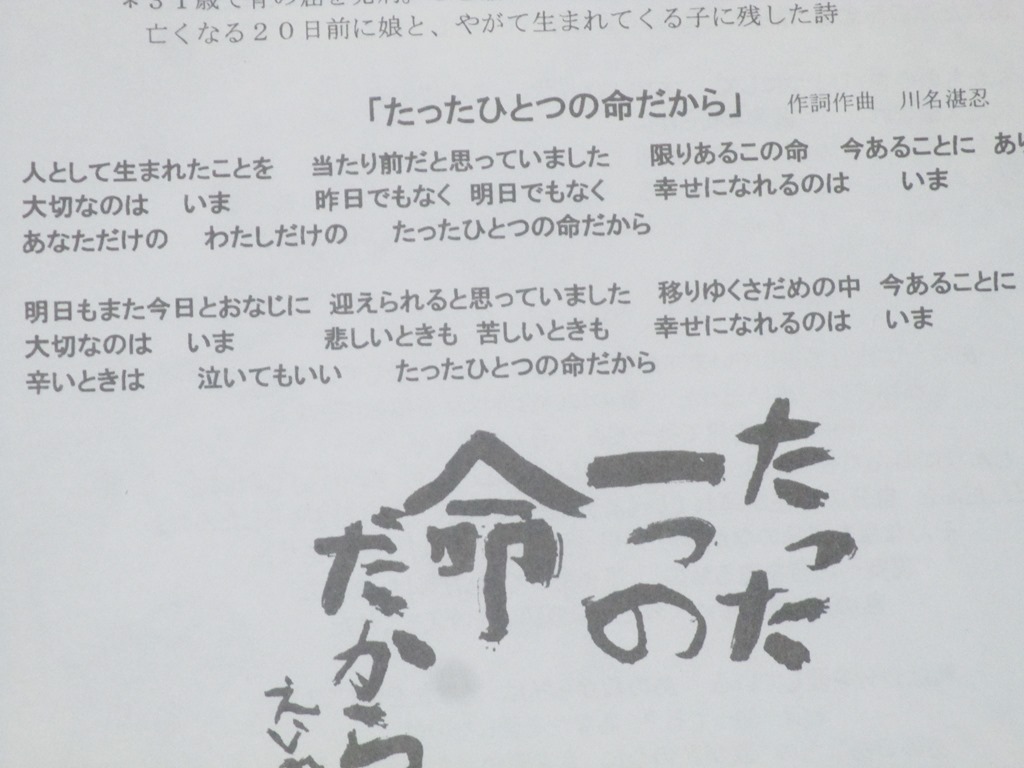 *31歳で骨の癌を発病。
亡くなる20日前に娘と、やがて生まれてくる子に残した詩
「たったひとつの命だから」 作詞作曲 川名湛忍
人として生まれたことを 当たり前だと思っていました 限りあるこの命 今あることに あり
大切なのは いま 昨日でもなく 明日でもなく 幸せになれるのは いま
あなただけの わたしだけの たったひとつの命だから
明日もまた今日とおなじに 迎えられると思っていました 移りゆくさだめの中 今あることに
大切なのは いま 悲しいときも 苦しいときも 幸せになれるのは いま
辛いときは 泣いてもいい たったひとつの命だから
たった
一つの
命
だから
えい